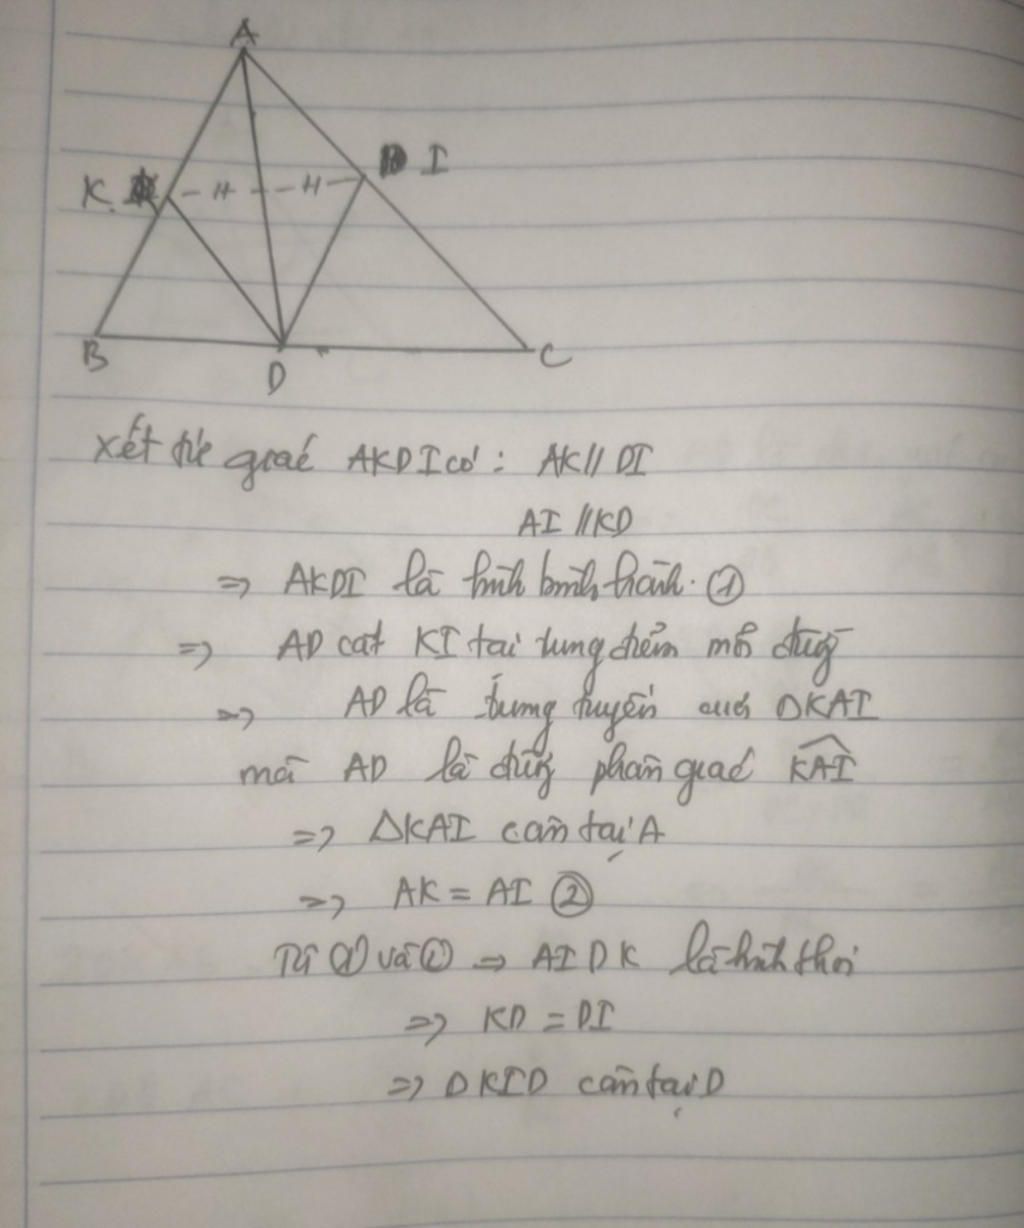 A
K
I
B
D
C
Xét tứ giác AKDI có: AK // DI
AI // KD
=> AKDI là hình bình hành. ①
=> AD cắt KI tại trung điểm mỗi đường
=> AD là trung tuyến của ΔKAI
mà AD là đường phân giác KAI
=> ΔKAI cân tại A
=> AK = AI ②
Từ ① và ② => AIDK là hình thoi
=> KD = DI
=> ΔKID cân tại D